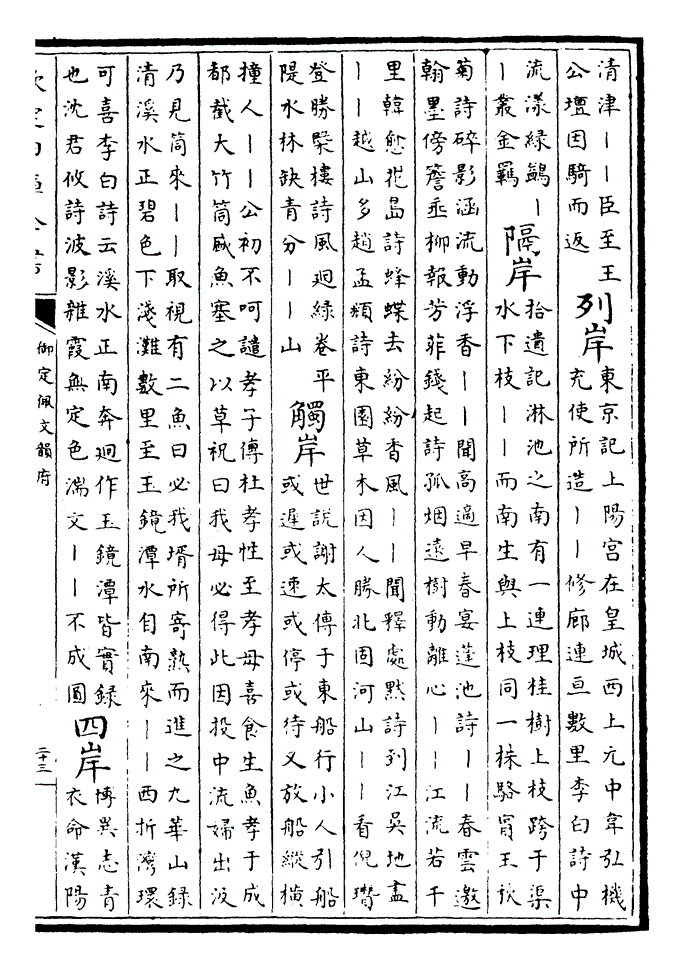 清津｜｜臣至王
公壇因騎而返
列岸
東京記上陽宫在皇城西上元中韋弘機
充使所造｜｜修廊連亘數里李白詩中
流漾緑鷁｜
｜叢金羈
隔岸
拾遺記淋池之南有一連理桂樹上枝跨于渠
水下枝｜｜而南生與上枝同一株駱賓王秋
菊詩碎影涵流動浮香｜｜聞高適早春宴蓬池詩｜｜春雲邀
翰墨傍簷垂柳報芳菲錢起詩孤烟遠樹動離心｜｜江流若千
里韓愈花島詩蜂蝶去紛紛香風｜｜聞釋處黙詩列江吳地盡
｜｜越山多趙孟頫詩東園草木因人勝北固河山｜｜看倪瓚
登勝槩樓詩風廻緑卷平
隄水林缺青分｜｜山
觸岸
世説謝太傅于東船行小人引船
或遲或速或停或待又放船縱橫
撞人｜｜公初不呵譴孝子傳杜孝性至孝母喜食生魚孝于成
都截大竹筒盛魚塞之以草祝曰我母必得此因投中流婦出汲
乃見筒來｜｜取視有二魚曰必我壻所寄熟而進之九華山録
清溪水正碧色下淺灘數里至玉鏡潭水自南來｜｜西折灣環
可喜李白詩云溪水正南奔廻作玉鏡潭皆實録
也沈君攸詩波影雜霞無定色湍文｜｜不成圓
四岸
博異志青
衣命漢陽
御定佩文韻府
二十三